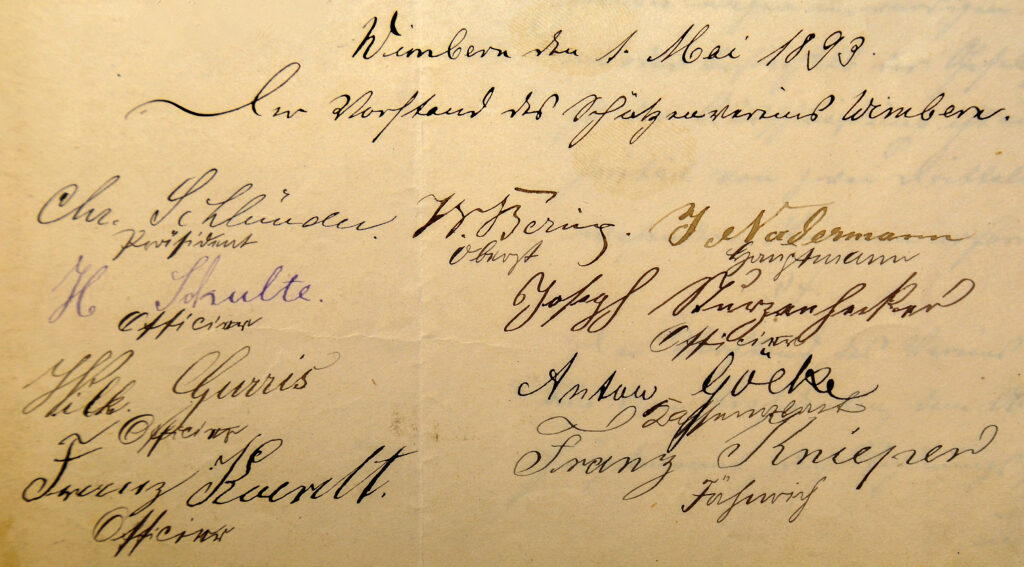 Wimbern den 1. Mai 1893.
Der Vorstand des Schützenvereins Wimbern.
Chr. Schlünder. W. Bering. J. Nadermann
Präsident Oberst Hauptmann
H Schulte. Joseph Sturzenhecker
Officier Officier
Wilh. Gurris Anton Gölke
Officier
Franz Koerdt. Franz Knieper
Officier Fähnrich